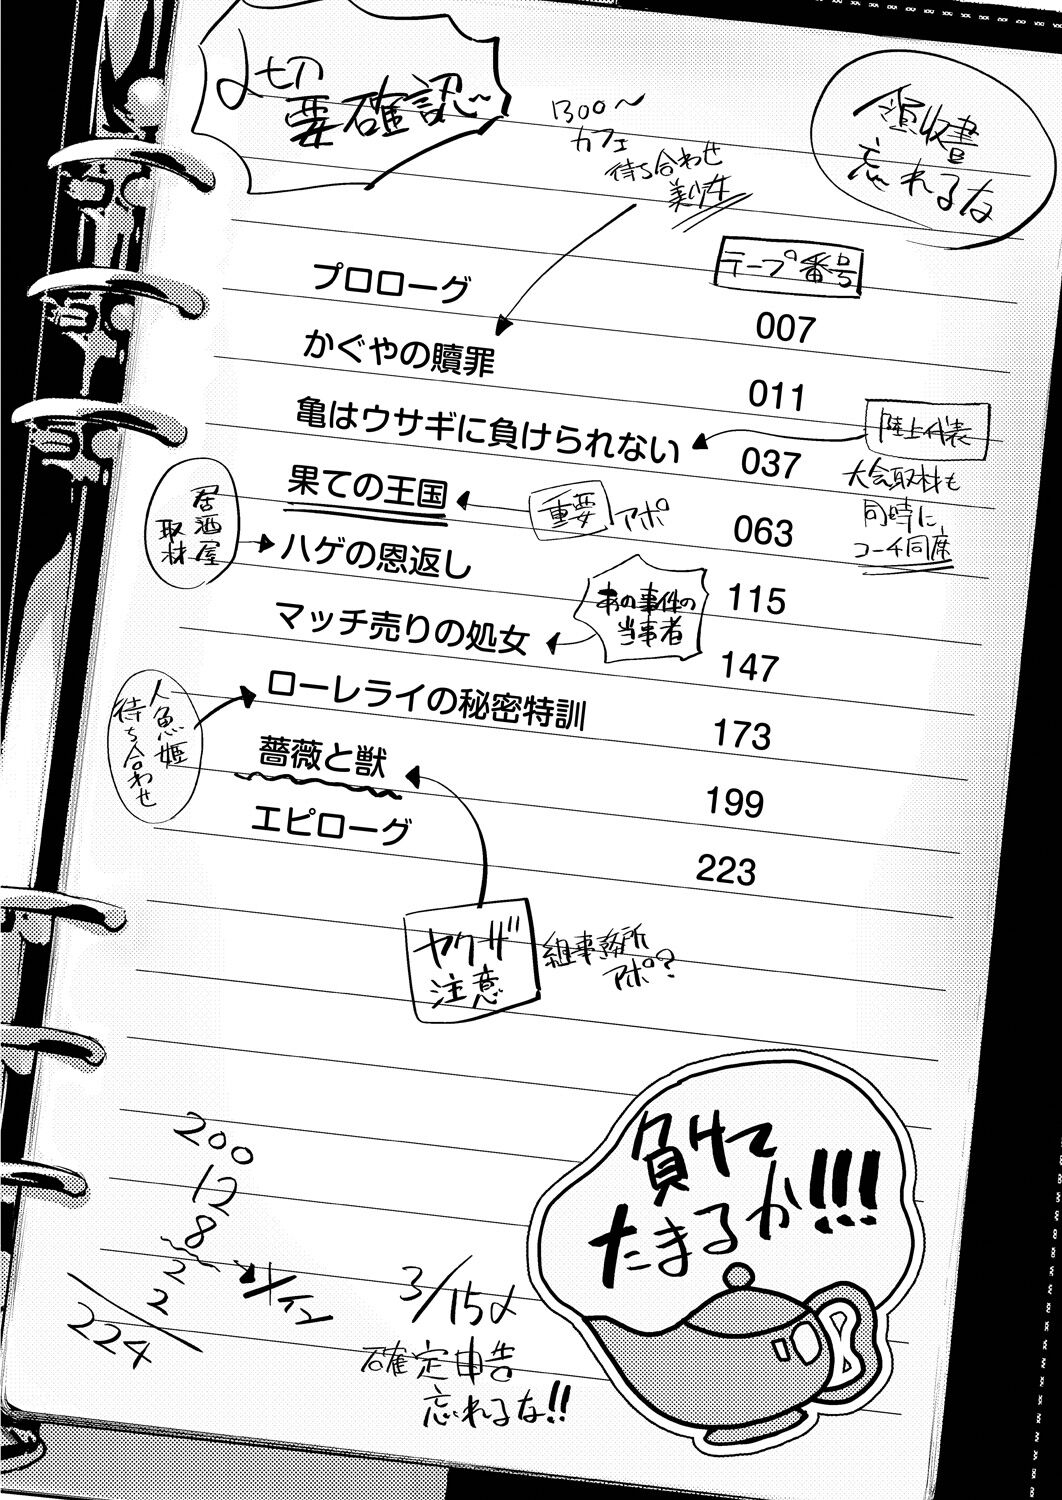 〆切
要確認～
1300～
カフェ
待ち合わせ
美少女
領収書
忘れるな
テープ番号
プロローグ 007
かぐやの贖罪 011
亀はウサギに負けられない 037
陸上代表
大会取材も
同時に
コーチ同席
果ての王国 063
重要 アポ
居酒屋
取材
ハゲの恩返し 115
あの事件の
当事者
マッチ売りの処女 147
人魚姫
待ち合わせ
ローレライの秘密特訓 173
薔薇と獣 199
エピローグ 223
ヤクザ
注意
組事務所
アポ?
200
12
8
2
2
224
3/15〆
確定申告
忘れるな!!
負けて
たまるか!!!